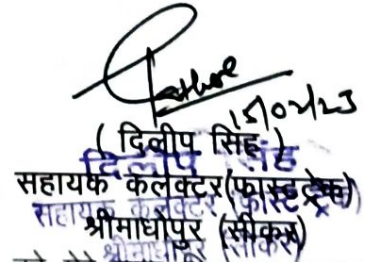 15/02/23
( दिलीप सिंह )
दिलीप सिंह
सहायक कलक्टर(फास्ट ट्रेक)
सहायक कलक्टर (फास्ट ट्रेक)
श्रीमाधोपुर (सीकर)
श्रीमाधोपुर (सीकर)